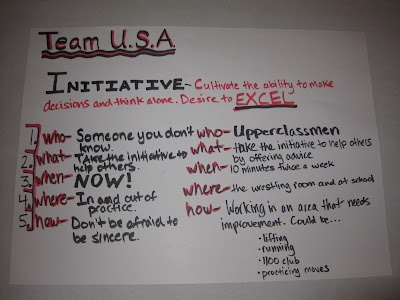 Team U.S.A
INITIATIVE- Cultivate the ability to make
decisions and think alone. Desire to EXCEL
1. who- Someone you don't
know.
2. what- Take the initiative to
help others.
3. when- NOW!
4. where- In and out of
practice.
5. how- Don't be afraid to
be sincere.
who- Upperclassmen
what- take the initiative to help others
by offering advice
when- 10 minutes twice a week
where- the wrestling room and at school
how- Working in an area that needs
improvement. Could be...
• lifting
• running
• 1100 club
• practicing moves